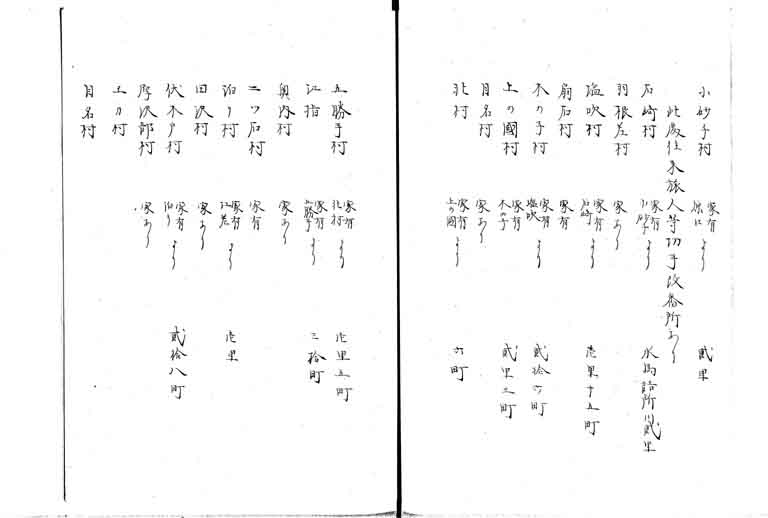 小砂子村 家有 原口より 貳里
此處往来旅人等切手改番所あり
石崎村 家有 小砂子より
羽根差村 家あり
塩吹村 家有 石崎より 壱里十五町
扇石村 家有
木の子村 家有 塩吹より 貳拾六町
上の國村 家有 木の子より 貳里三町
目名村 家あり
北村 家有 上の國より 六町
五勝手村 家有 北村より 壱里五町
江指 家有 五勝手より 三拾町
奥内村 家あり
二ツ石村 家有
泊り村 家有 江差より 壱里
田沢村 家あり
伏木戸村 家有 泊りより 貳拾八町
厚沢部村 家あり
土の村
目名村